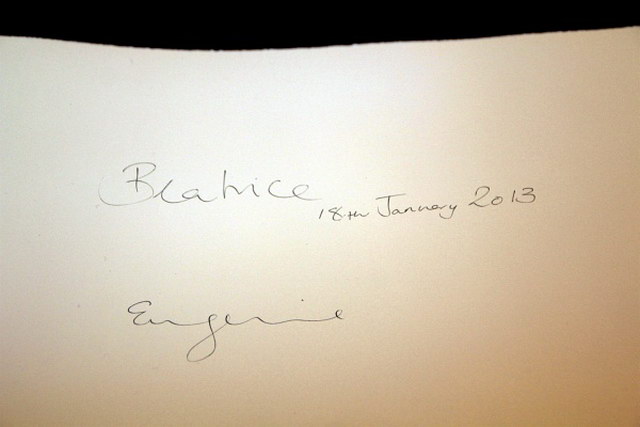 Beatrice
18th January 2013
Eugenie